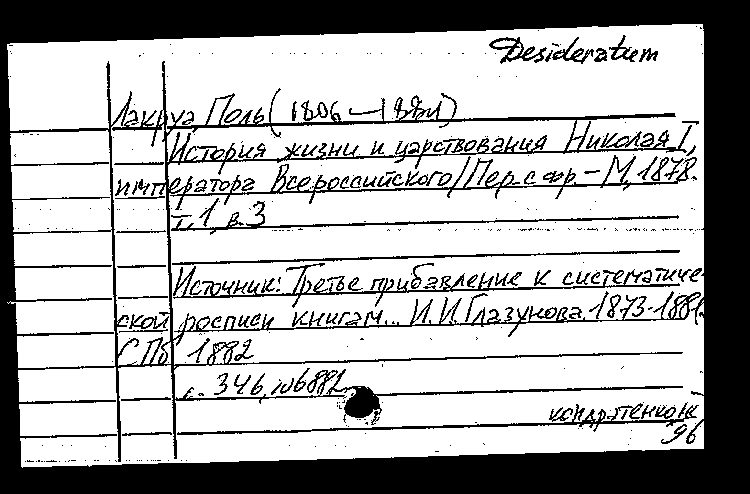 Desideratum
Лакруа, Поль (1806 —
История жизни и царствования Николая I,
императора Всероссийского/Пер. с фр. – М, 1878.
т. 1, в. 3
Источник: Третье прибавление к систематиче-
ской росписи книгам... И.И. Глазунова. 1873-1881.
СПб, 1882
с. 346, 6882
96